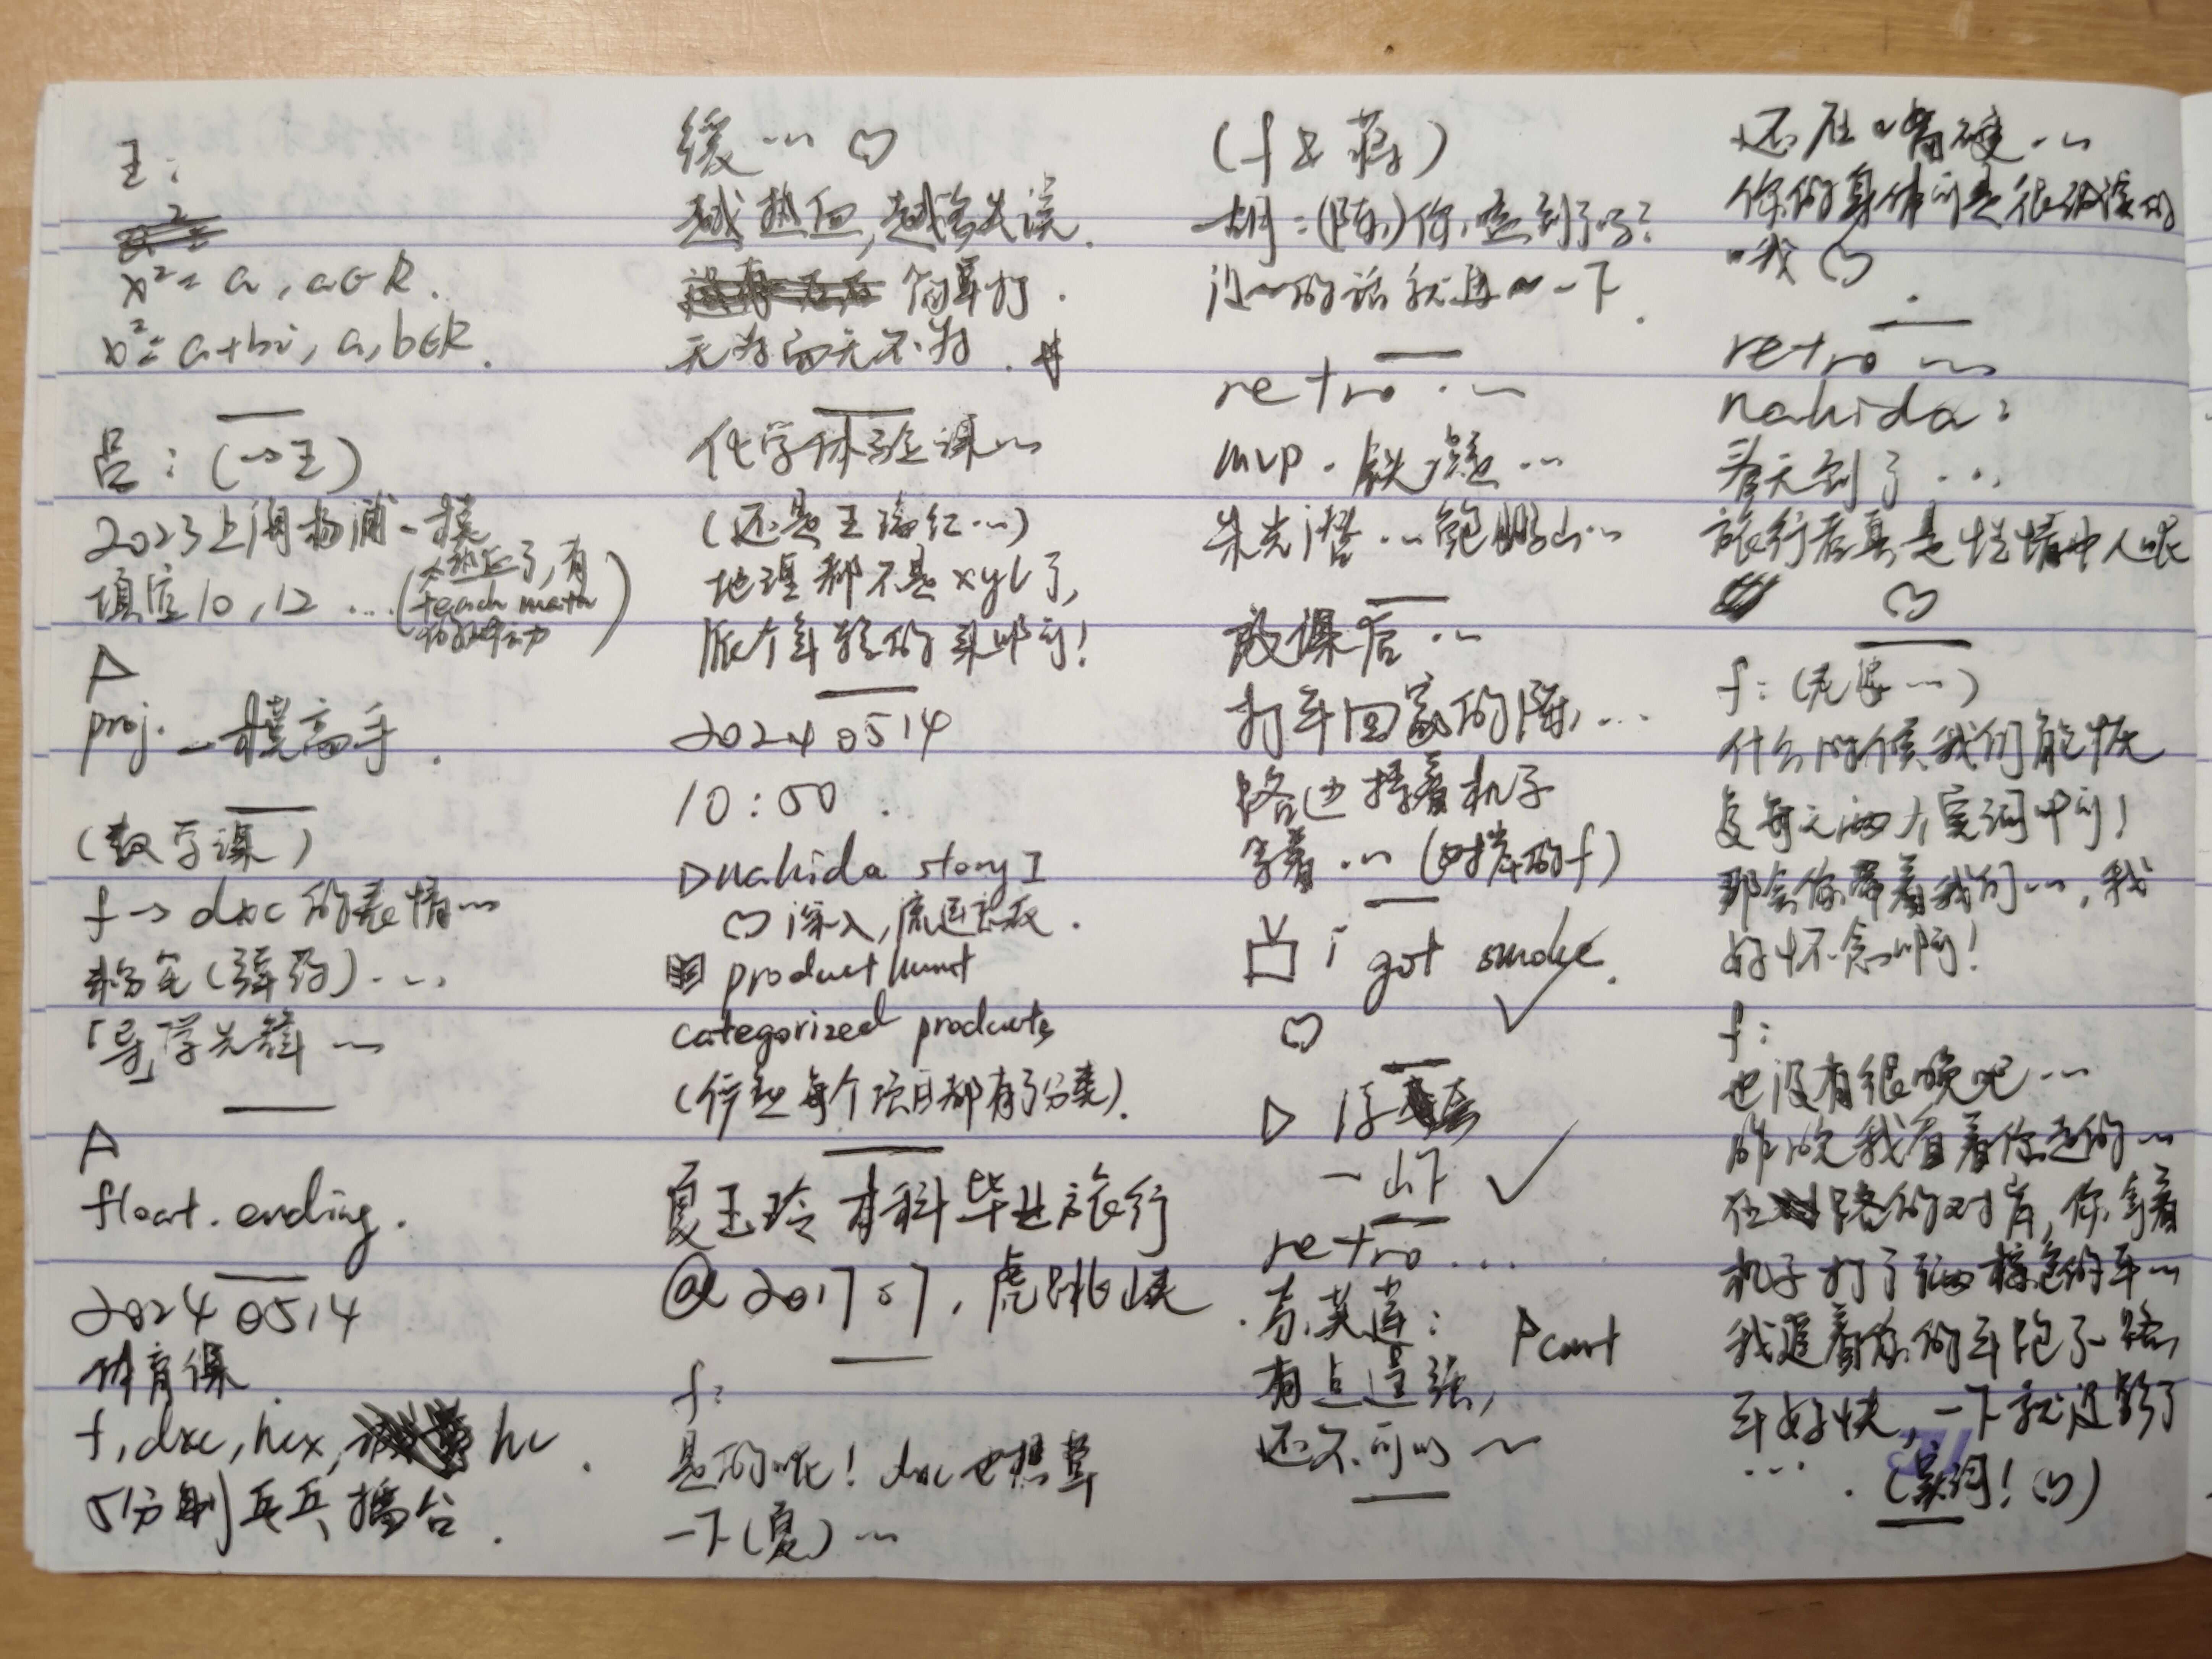 王:
x²=a, a∈R.
x²=a+bi, a,b∈R.
吕:(→王)
2023上海杨浦一模
填空10,12 ...(太热血了,有
teach math
的冲动)
proj. 一模高手.
(数学课)
f→dxc的表情~
(弹药)...
「导」学先锋~
float. ending.
2024 0514
体育课.
f, dxc, hcx, hc.
5分制乒乓擂台.
缓... ♡
越热血,越会失误.
简单打.
无为而无不为.
化学体验课~
(还是王海红...)
地理都不是xyl了,
派个年轻的来啊!
2024 0514
10:50.
▷nahida story I
♡深入,流连忘返.
product hunt
categorized products
(停车 每个项目都有了分类).
夏玉玲本科毕业旅行
@2017 07, 虎跳峡
f:
是的呢!dxc也想草
一下(夏)~
(f & 蒋)
胡:(陈)你,噎到了吗?
没~的话就再~一下.
retro.~
mvp. 铁憨...
朱光潜...鲍鹏山...
放课后.~
打车回家的陈...
路边持着机子
等着...(对岸的f)
i got smoke.
♡
▷ 浮
一山下
retro...
有点逞强,
还不可以~
Pcart
还在~嘴硬.~
你的身体可是很诚实的
~我♡.
retro ~
nahida:
春天到了...
旅行者真是性情中人呢
♡
f:(无偿...)
什么时候我们能恢
复每天两个实词啊!
那会你带着我们...,我
好怀念啊!
f:
也没有很晚吧...
昨晚我看着你走的~
在路的对岸,你拿着
机子打了辆棕色的车~
我追着你的车跑了一路
车好快,一下就没影了
....(实词!♡)